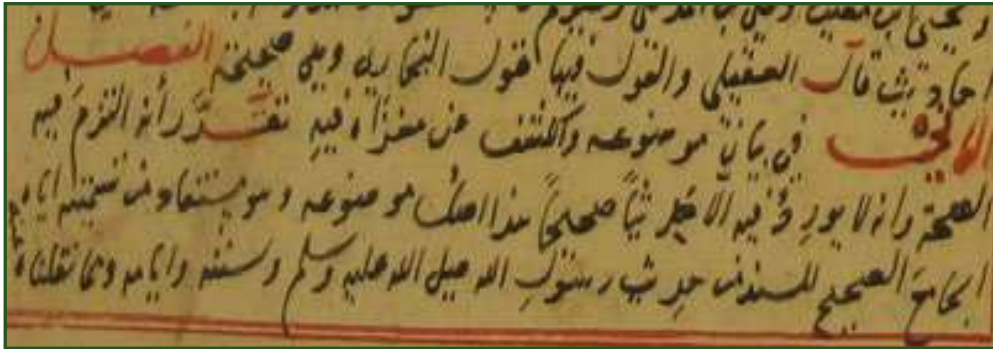 احاديث قال العقيلي والقول فيها قول البخاري وهي صحيحة الفصل
الثاني في بيان موضوعه والكشف عن مغزاه فيه تقرر أنه التزم فيه
الصحة وانه لا يورد فيه الا حديثاً صحيحاً هذا اصل موضوعه وهو مستفاد من تسميته اياه
الجامع الصحيح المسند من حديث رسول الله صلى الله عليه وسلم وسننه وايامه ومما نقلناه